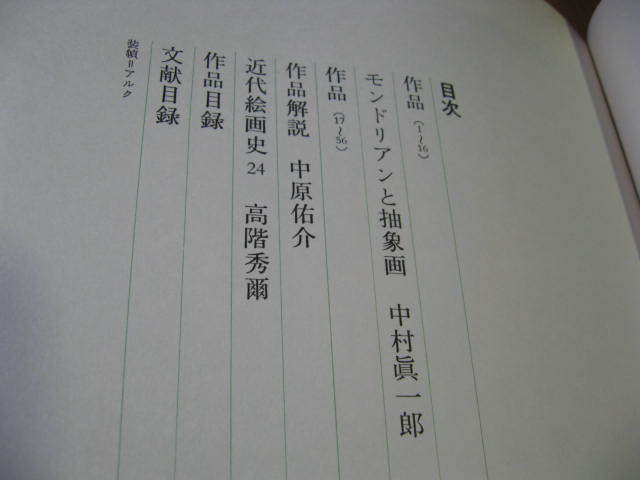 目次
作品（1〜16）
モンドリアンと抽象画　中村眞一郎
作品（17〜56）
作品解説　中原佑介
近代絵画史24　高階秀爾
作品目録
文献目録
装幀＝アルク